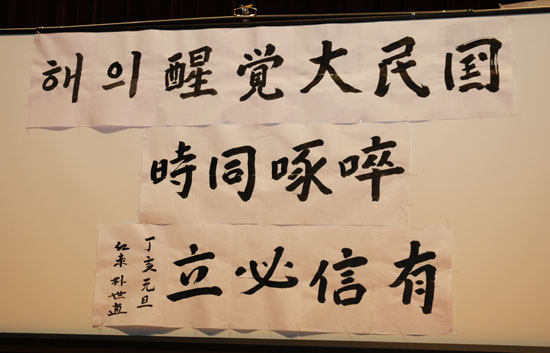 国民大覚醒의해
啐啄同時
有信必立
丁亥元旦
朴世直